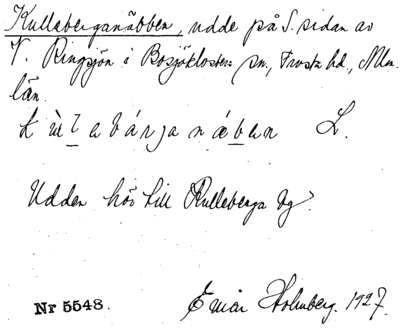 Kullaberganäbben, udde på S. sidan av
V. Ringsjön i Bosjöklosters sn., Frosta hd., Mlm.
län.
kùlabárjanäban L.
Udden hör till Kullaberga by.
Nr 5548. Einar Holmberg. 1927.